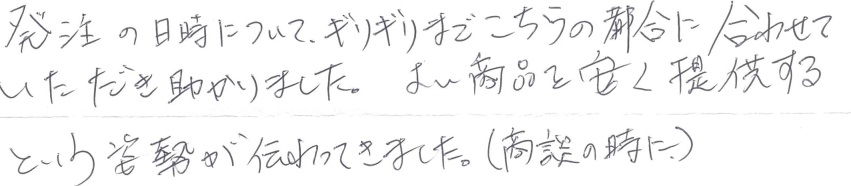 発注の日時について、ギリギリまでこちらの都合に合わせて
いただき助かりました。よい商品を安く提供する
という姿勢が伝わってきました。(商談の時に)